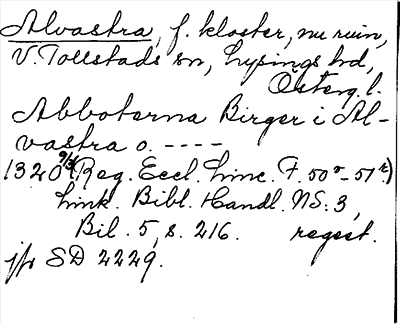 Alvastra, f. kloster, nu ruin,
V. Tollstads sn, Lysings hd,
Österg. l.
Abboterna Birger i Al-
vastra o. ----
1320 9/3 (Reg. Eccl. Linc. F. 50r-51r)
Link. Bibl. Handl. NS. 3,
Bil. 5, s. 216. regest.
jfr SD 2229.